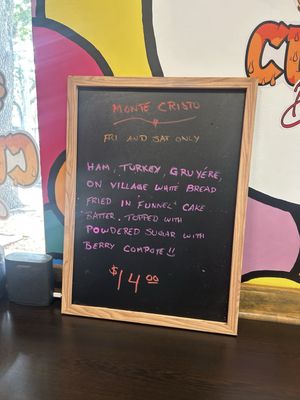 MONTE CRISTO
FRI AND SAT ONLY
HAM, TURKEY, GRUYÉRE,
ON VILLAGE WHITE BREAD
FRIED IN "FUNNEL" CAKE
BATTER. TOPPED WITH
POWDERED SUGAR WITH
BERRY COMPOTE!!
$14.00